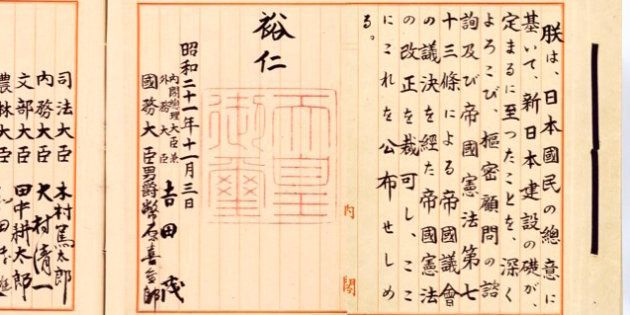 朕は、日本國民の總意に
基いて、新日本建設の礎が、
定まるに至つたことを、深く
よろこび、樞密顧問の諮
詢及び帝國憲法第七
十三條による帝國議會
の議決を経た帝國憲法
の改正を裁可し、ここ
にこれを公布せしめ
る。
裕仁
天皇
御璽
昭和二十一年十一月三日
内閣總理大臣兼
外務大臣
吉田茂
國務大臣 男爵幣原喜重郎
司法大臣 木村篤太郎
内務大臣 大村清一
文部大臣 田中耕太郎
農林大臣
内閣